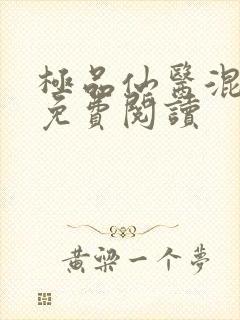 極品仙醫混
免費閱讀
黃梁一个夢